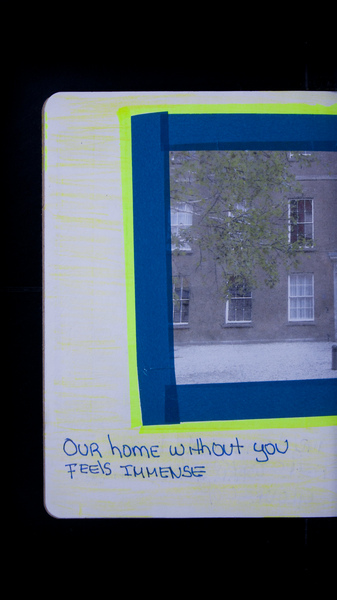 Our home without you
Feels immense